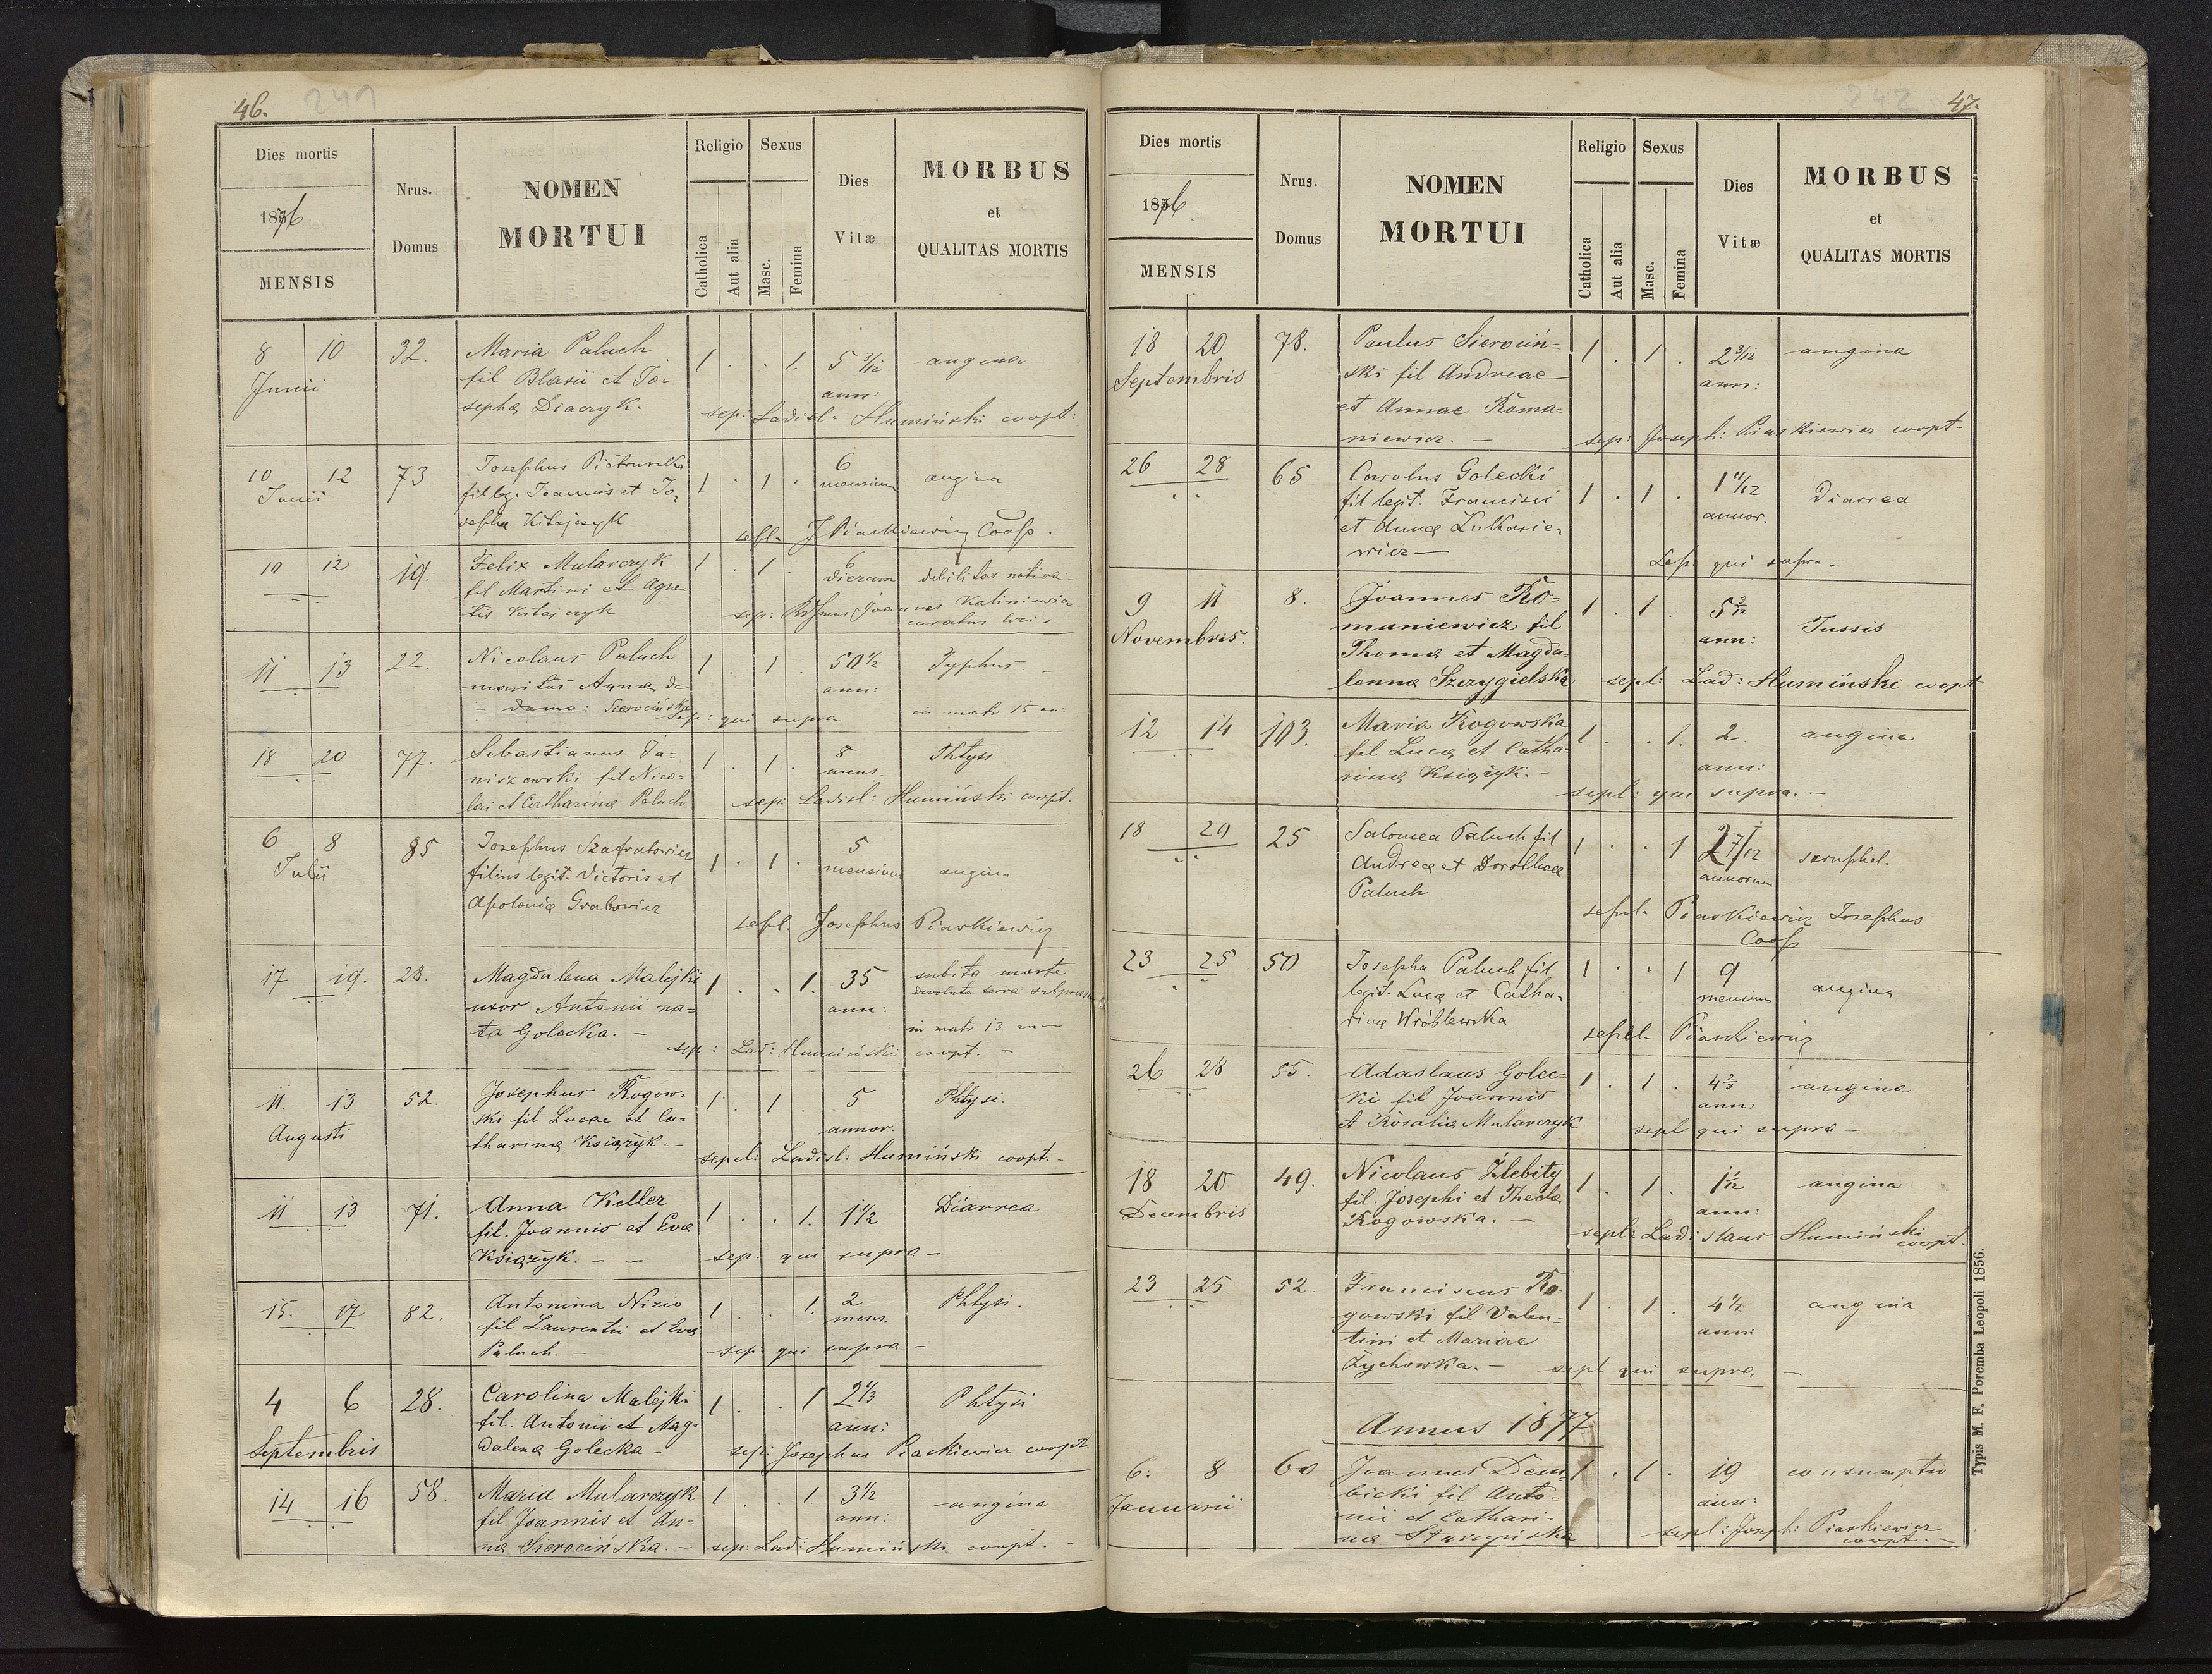 46. 241
Dies mortis
1876
MENSIS
Nrus.
Domus
NOMEN
MORTUI
Religio
Catholica
Aut alia
Sexus
Masc.
Femina
Dies
Vitæ
MORBUS
et
QUALITAS MORTIS
8 10 32. Maria Paluch 1 . . 1. 5 3/12 angina
Junii fil Blasii et Jo- ann:
sepha Diaczyk. sep: Ladisl: Humiński coopt:
10 12 73 Josephus Pietruszka 1 . 1 . 6 angina
Junii fil leg. Joannis et Jo- mensium
sepha Kitajczyk sepl. J Piaskiewicz Coop.
10 12 19. Felix Mularczyk 1 . 1 . 6 debilitas nativa
fil Martini et Agne- dierum
tis Kitajczyk sep: Joannes Kaliniewicz
curatus loci
11 13 22. Nicolaus Paluch 1 . 1 . 50 1/2 Typhus. -
maritus Annæ de ann:
- domo: Sierocińska in matr 15 an:
sep: qui supra
18 20 77. Sebastianus Ja- 1 . 1 . 8 Phtysi
niszewski fil Nico- mens.
lai et Catharina Paluch sep: Ladisl: Humiński coopt.
6 8 85 Josephus Szafratowicz 1 . 1 . 5 angina
Julii filius legit. Victoris et mensium
Apolonia Grabowicz
sepl. Josephus Piaskiewicz
17 19. 28. Magdalena Malejki 1 . . 1. 35 subita morte
uxor Antonii na- ann: devoluta terra
ta Golecka. - in matr 13 an -
sep: Lad: Humiński coopt. -
11. 13 52. Josephus Rogow- 1 . 1 . 5 Phtysi.
Augusti ski fil Lucae et Ca- annor.
tharina Książyk. - sepel: Ladisl: Humiński coopt. -
11 13 71. Anna Keller 1 . . 1. 1 1/2 Diarrea
fil. Joannis et Eva
Książyk. - - sep: qui supra -
15. 17 82. Antonina Nizio 1 . . 1. 2 Phtysi.
fil Laurentii et Eva mens.
Paluch. - sep: qui supra -
4 6 28. Carolina Malejki 1 . . 1 2 1/3 Phtysi
Septembris fil: Antonii et Mag- ann:
dalena Golecka - sep: Josephus Piaskiewicz coopt.
14 16 58. Maria Mularczyk 1 . . 1. 3 1/2 angina
fil. Joannis et An- ann:
na Sierocińska. - sep: Lad: Humiński coopt. -
242 47.
Dies mortis
1876
MENSIS
Nrus.
Domus
NOMEN
MORTUI
Religio
Catholica
Aut alia
Sexus
Masc.
Femina
Dies
Vitæ
MORBUS
et
QUALITAS MORTIS
18 20 78. Paulus Sierociń- 1 . 1 . 2 3/12 angina
Septembris ski fil Andreae ann:
et Annae Roma-
niewicz. - sep: Joseph: Piaskiewicz coopt -
26 28 65 Carolus Golecki 1 . 1 . 1 11/12 Diarrea
fil legit. Francisci annor.
et Anna Lukasie-
wicz - Sep: qui supra.
9 11 8. Joannes Ro- 1 . 1 . 5 2/12 Tussis
Novembris. maniewicz fil ann:
Thoma et Magda-
lenna Szczygielska sepl: Lad: Humiński coopt
12 14 103. Maria Rogowska 1 . . 1. 2. angina
fil Luca et Catha- ann:
rina Książyk. - sepl: qui supra. -
18 20 25 Salomea Paluch fil 1 . . 1 2 7/12 scruphel.
Andrea et Dorothea annorum
Paluch
sepul. Piaskiewicz Josephus
Coop
23 25 50 Josepha Paluch fil 1 . . 1 9 angina
legit. Luca et Catha- mensium
rina Wróblewska sepel. Piaskiewicz
26 28 55. Adaslaus Golec- 1 . 1 . 4 2/3 angina
ki fil Joannis ann:
et Rosalia Mularczyk sepl qui supra -
18 20 49. Nicolaus Żlebity 1 . 1 . 1 1/2 angina
Decembris fil. Josephi et Thecla ann:
Rogowska. - sepl: Ladislaus Humiński
coopt.
23 25 52. Franciscus Ro- 1 . 1 . 4 1/2 angina
gowski fil Valen- ann:
tini et Mariae
Żychowka. - sepl qui supra -
Annus 1877
6. 8 60 Joannes Dem- 1 . 1 . 19 consumptio
Januarii bicki fil Anto- ann:
nii et Cathari-
na Starzyńska sepl: Joseph: Piaskiewicz
coopt. -
Typis M. F. Poremba Leopoli 1856.